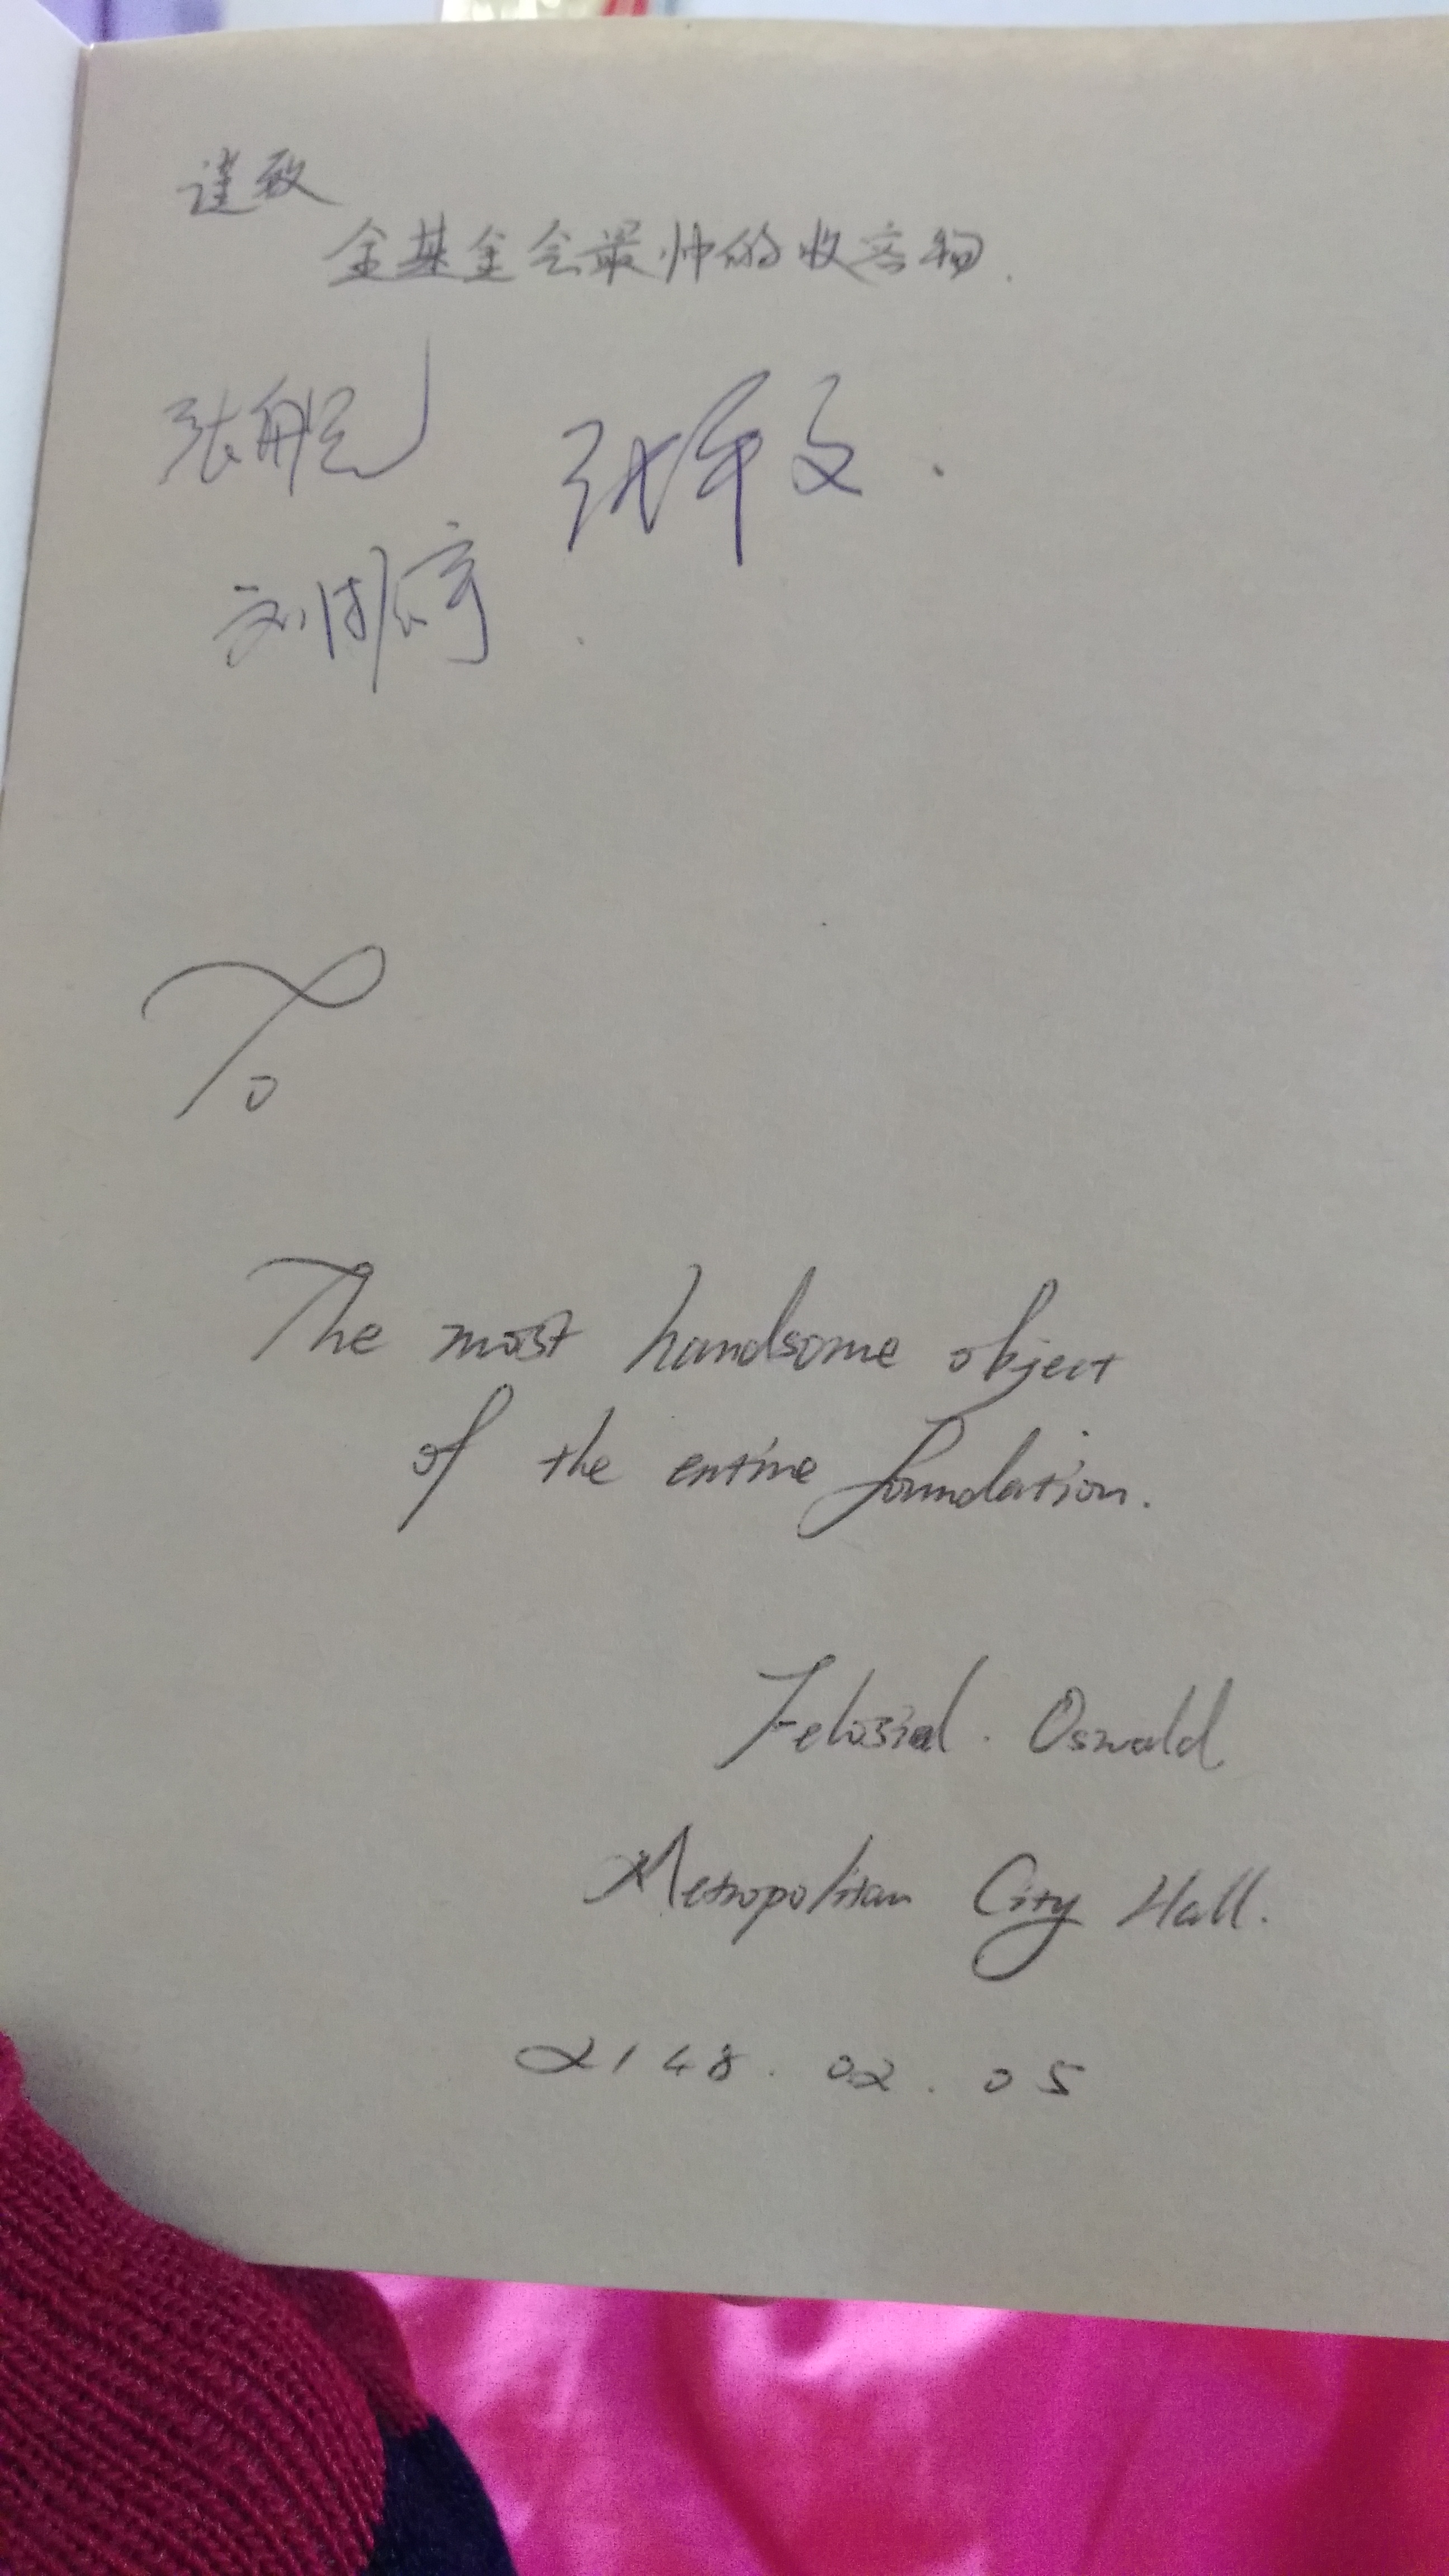 谨致
全基金会最帅的收容物.
张
张军文.
刘
To
The most handsome object
of the entire foundation.
Oswald
Metropolitan City Hall.
2148.02.05